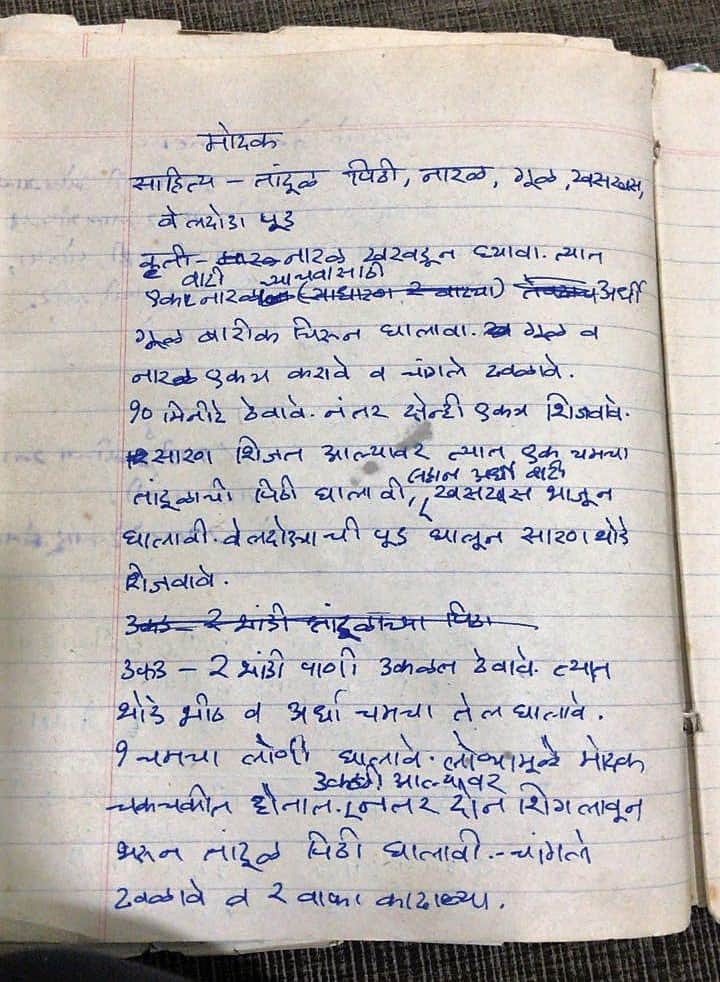 मोदक
साहित्य – तांदूळ पिठी, नारळ, गूळ, खसखस,
वेलदोडा पूड
कृती – नारळ खरवडून घ्यावा. त्यात
वाटी चवासाठी
एका नारळ (साधारण २ वाट्या) अर्धी
गूळ बारीक चिरून घालावा. गूळ व
नारळ एकत्र करावे व चांगले ढवळावे.
१० मिनीटे ठेवावे. नंतर दोन्ही एकत्र शिजवावे.
सारण शिजत आल्यावर त्यात एक चमचा
लहान अर्धी वाटी
तांदूळाची पिठी घालावी, खसखस भाजून
घालावी. वेलदोड्याची पूड घालून सारण थोडे
शिजवावे.
उकड – २ भांडी तांदूळाच्या पिठी
उकड – २ भांडी पाणी उकळत ठेवावे. त्यात
थोडे मीठ व अर्धा चमचा तेल घालावे.
१ चमचा लोणी घालावे. लोण्यामूळे मोदक
उकळी आल्यावर
चकचकीत होतात. नंतर दोन शिग लावून
भरून तांदूळ पिठी घालावी. चांगले
ढवळावे व २ वाफा काढाव्या.